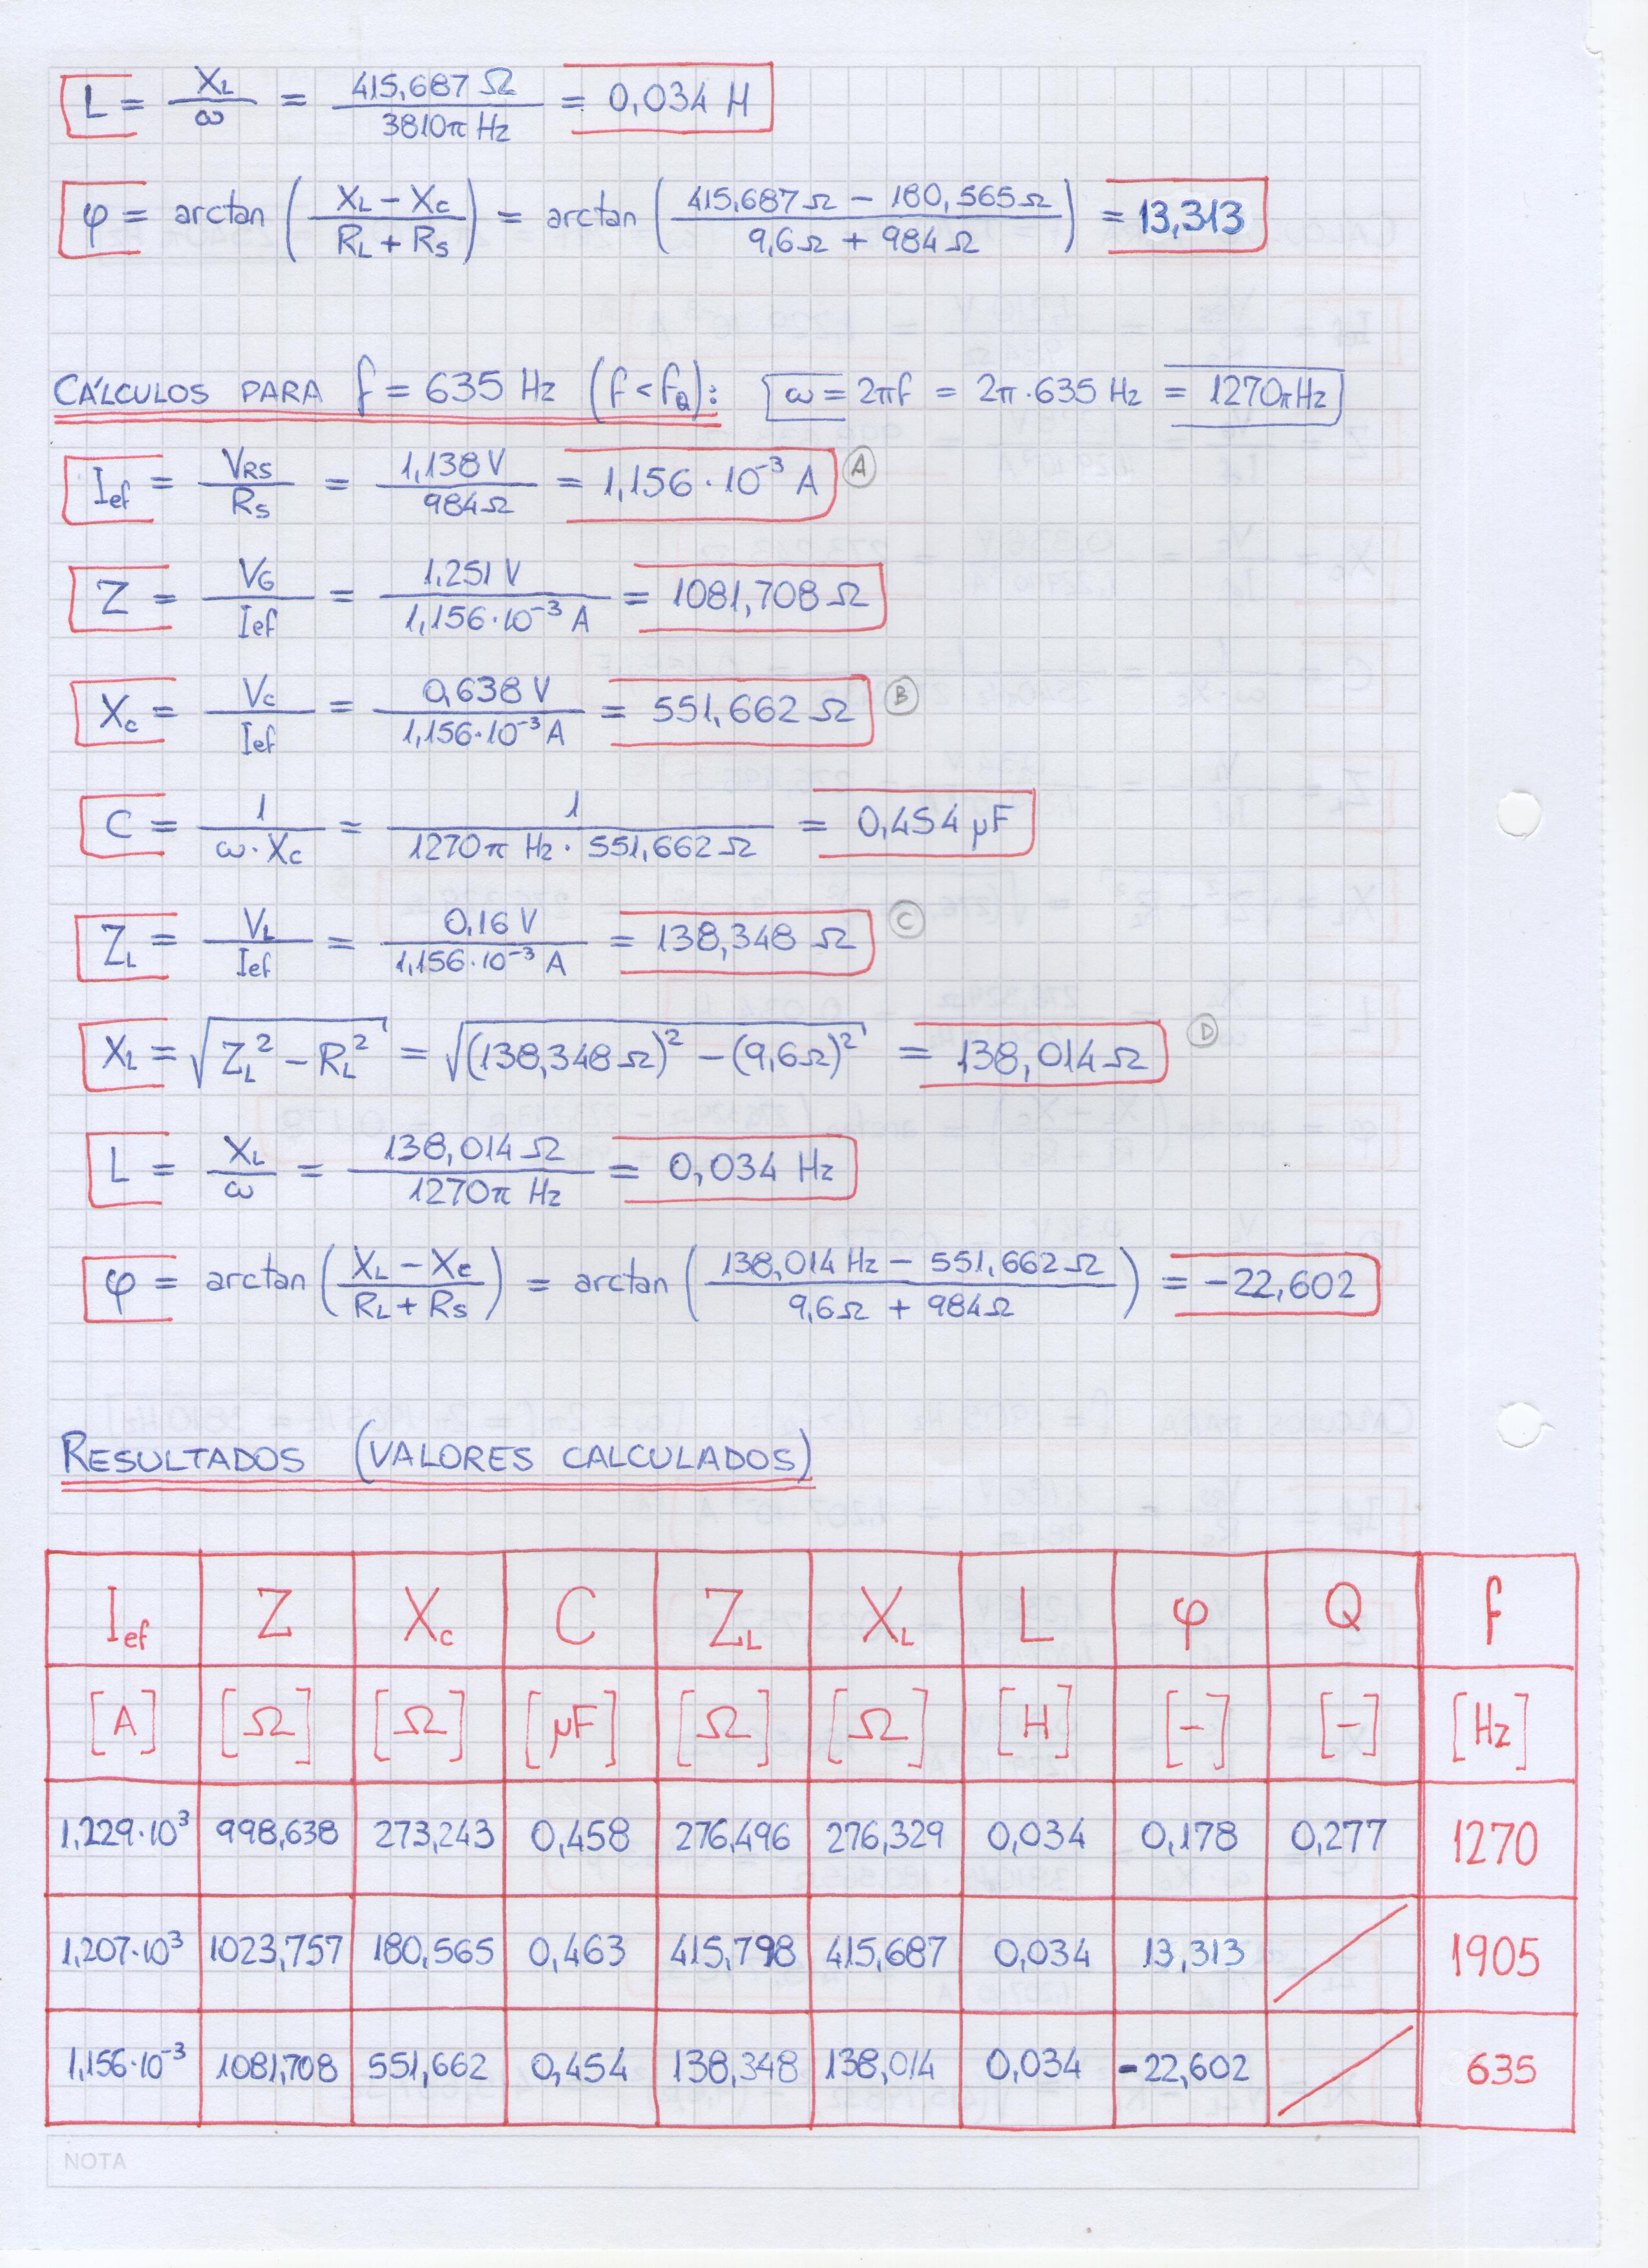 L = X_L / ω = 415,687 Ω / 3810π Hz = 0,034 H
φ = arctan ( X_L − X_C / R_L + R_S ) = arctan ( 415,687 Ω − 180,565 Ω / 9,6 Ω + 984 Ω ) = 13,313
CÁLCULOS PARA f = 635 Hz (f < f_Q): ω = 2πf = 2π · 635 Hz = 1270π Hz
I_ef = V_RS / R_S = 1,138 V / 984 Ω = 1,156 · 10⁻³ A Ⓐ
Z = V_G / I_ef = 1,251 V / 1,156 · 10⁻³ A = 1081,708 Ω
X_C = V_C / I_ef = 0,638 V / 1,156 · 10⁻³ A = 551,662 Ω Ⓑ
C = 1 / ω · X_C = 1 / 1270π Hz · 551,662 Ω = 0,454 μF
Z_L = V_L / I_ef = 0,16 V / 1,156 · 10⁻³ A = 138,348 Ω Ⓒ
X_L = √(Z_L² − R_L²) = √((138,348 Ω)² − (9,6 Ω)²) = 138,014 Ω Ⓓ
L = X_L / ω = 138,014 Ω / 1270π Hz = 0,034 Hz
φ = arctan ( X_L − X_C / R_L + R_S ) = arctan ( 138,014 Hz − 551,662 Ω / 9,6 Ω + 984 Ω ) = −22,602
RESULTADOS (VALORES CALCULADOS)
I_ef Z X_C C Z_L X_L L φ Q f
[A] [Ω] [Ω] [μF] [Ω] [Ω] [H] [−] [−] [Hz]
1,229·10³ 998,638 273,243 0,458 276,496 276,329 0,034 0,178 0,277 1270
1,207·10³ 1023,757 180,565 0,463 415,798 415,687 0,034 13,313 1905
1,156·10⁻³ 1081,708 551,662 0,454 138,348 138,014 0,034 −22,602 635
NOTA